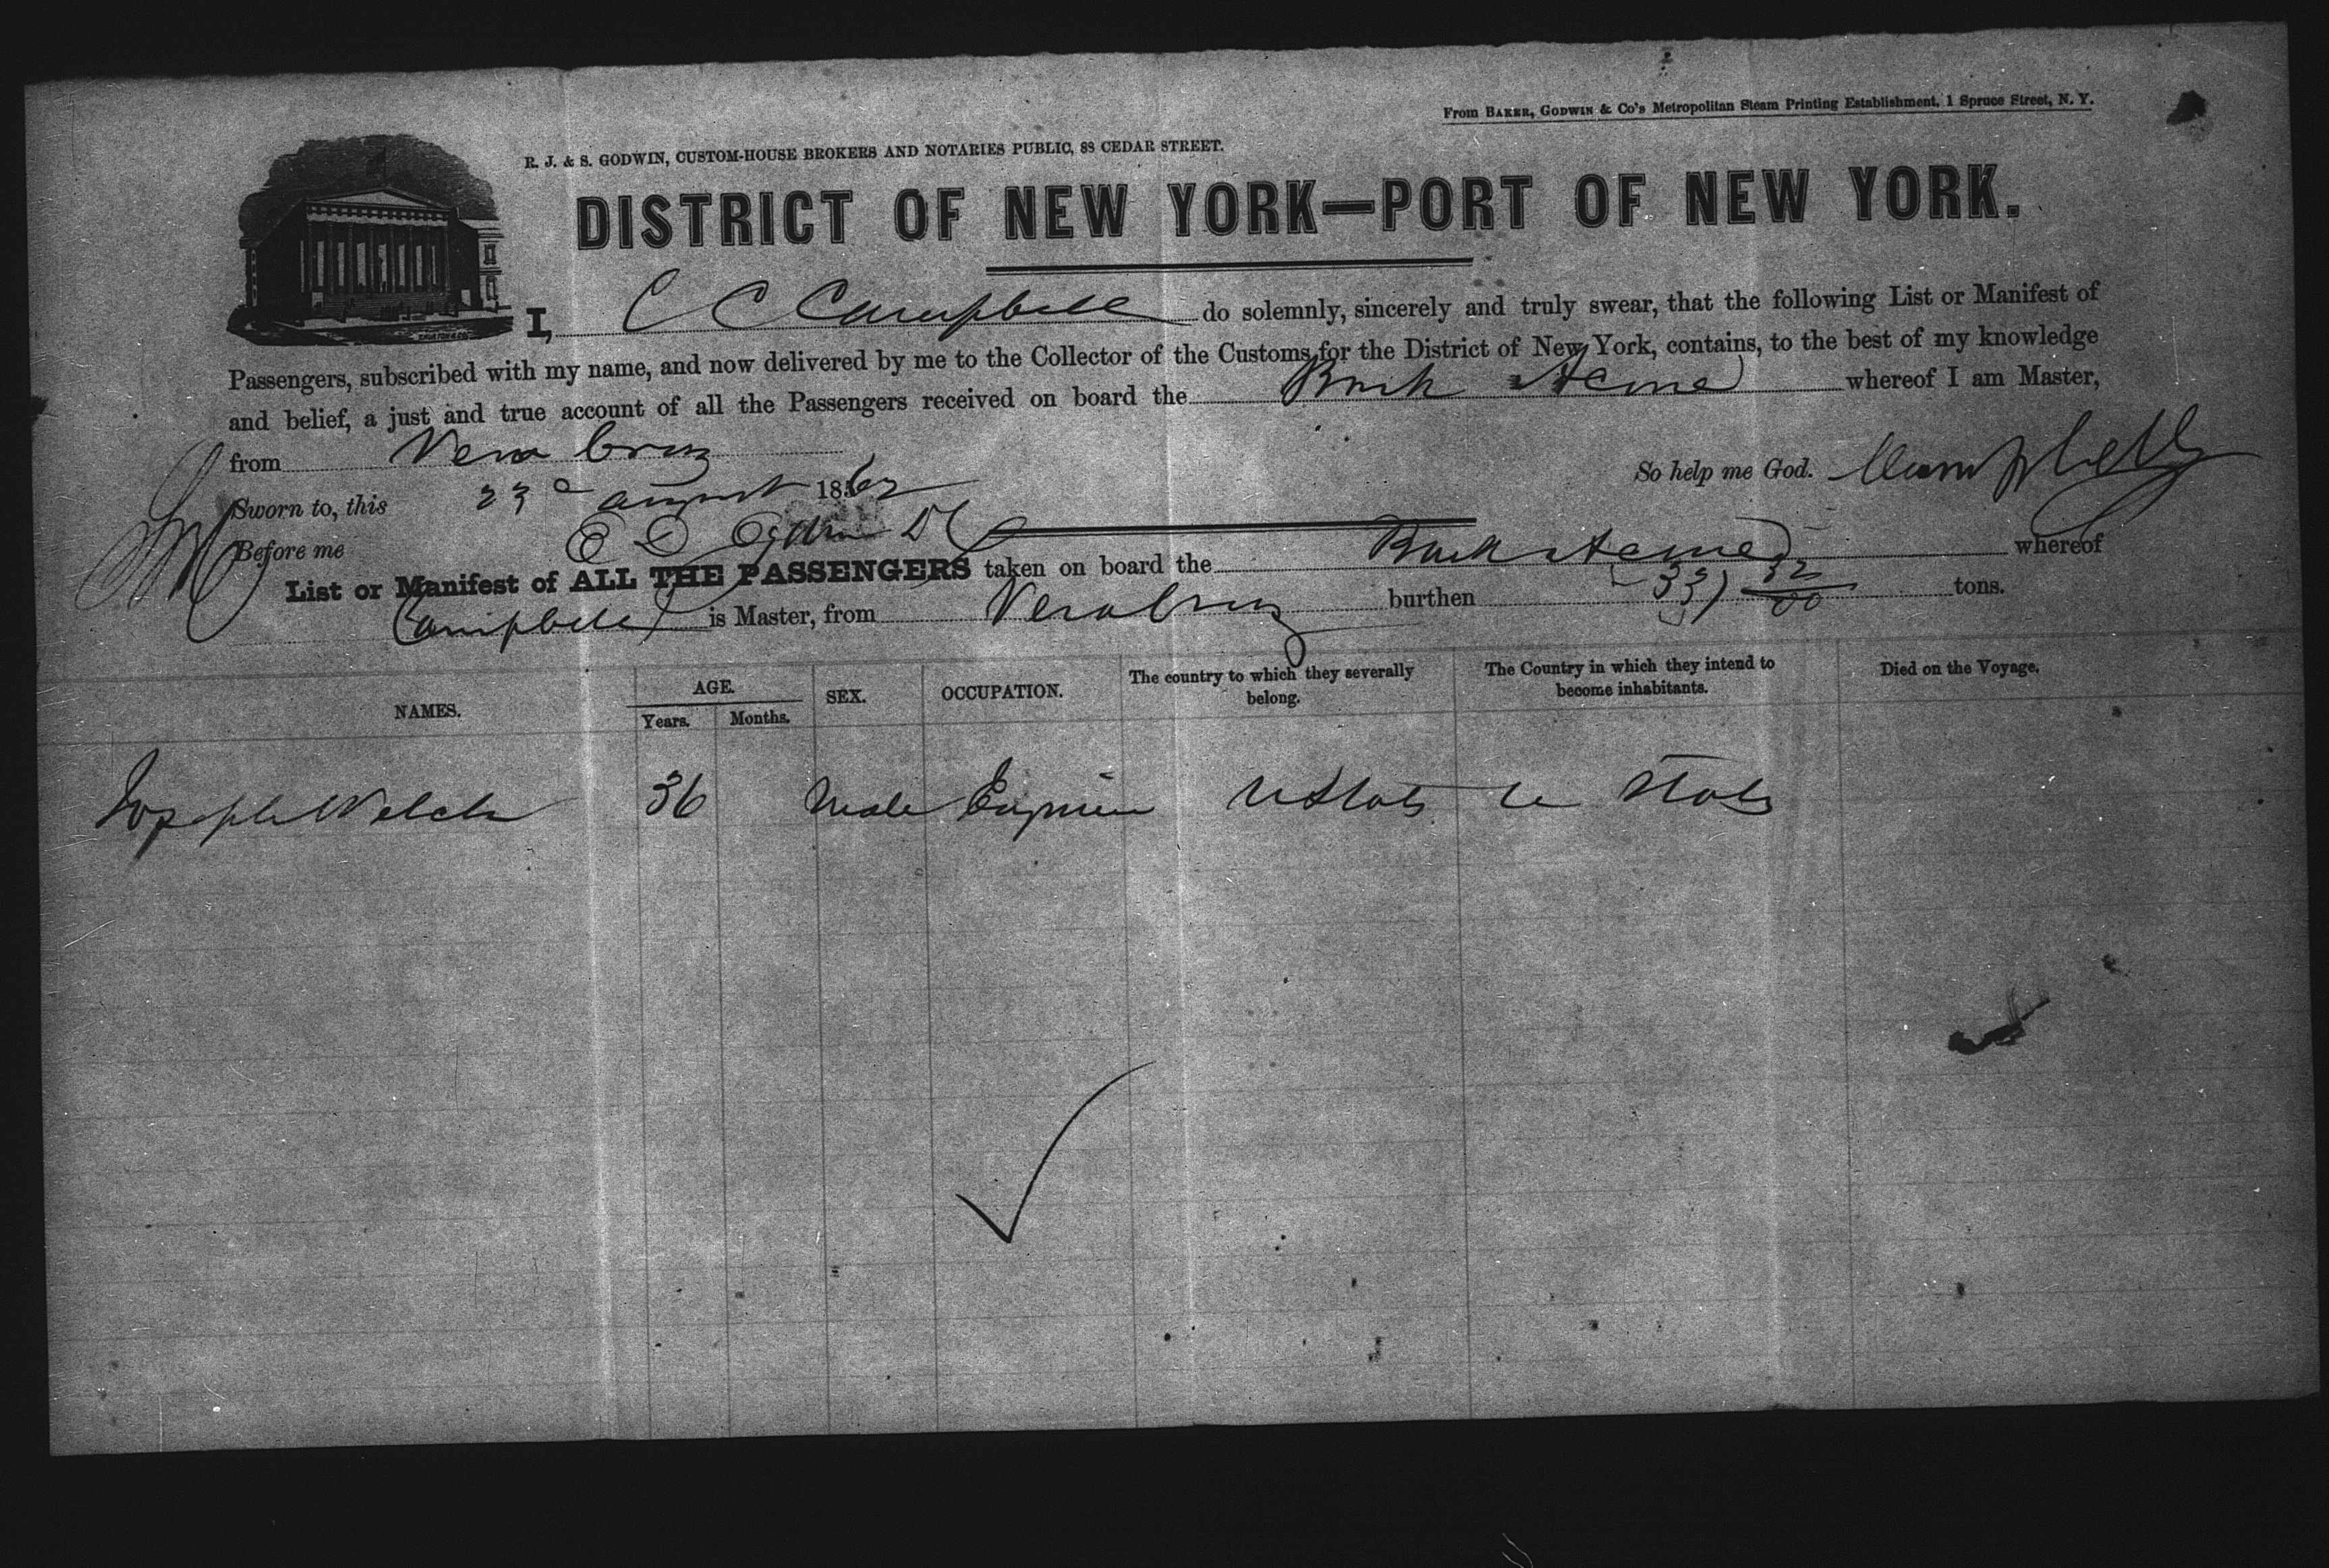 From BAKER, GODWIN & Co's Metropolitan Steam Printing Establishment, 1 Spruce Street, N. Y.
R. J. & S. GODWIN, CUSTOM-HOUSE BROKERS AND NOTARIES PUBLIC, 88 CEDAR STREET.
DISTRICT OF NEW YORK—PORT OF NEW YORK.
I, C C Campbell do solemnly, sincerely and truly swear, that the following List or Manifest of
Passengers, subscribed with my name, and now delivered by me to the Collector of the Customs for the District of New York, contains, to the best of my knowledge
and belief, a just and true account of all the Passengers received on board the Bark Acme whereof I am Master,
from Vera Cruz
So help me God. Campbell
Sworn to, this 23d August 1862
Before me E D Ogden
List or Manifest of ALL THE PASSENGERS taken on board the Bark Acme whereof
Campbell is Master, from Vera Cruz burthen tons.
NAMES. AGE. Years. Months. SEX. OCCUPATION. The country to which they severally belong. The Country in which they intend to become inhabitants. Died on the Voyage.
Joseph Welch 36 Male Engineer U States U States